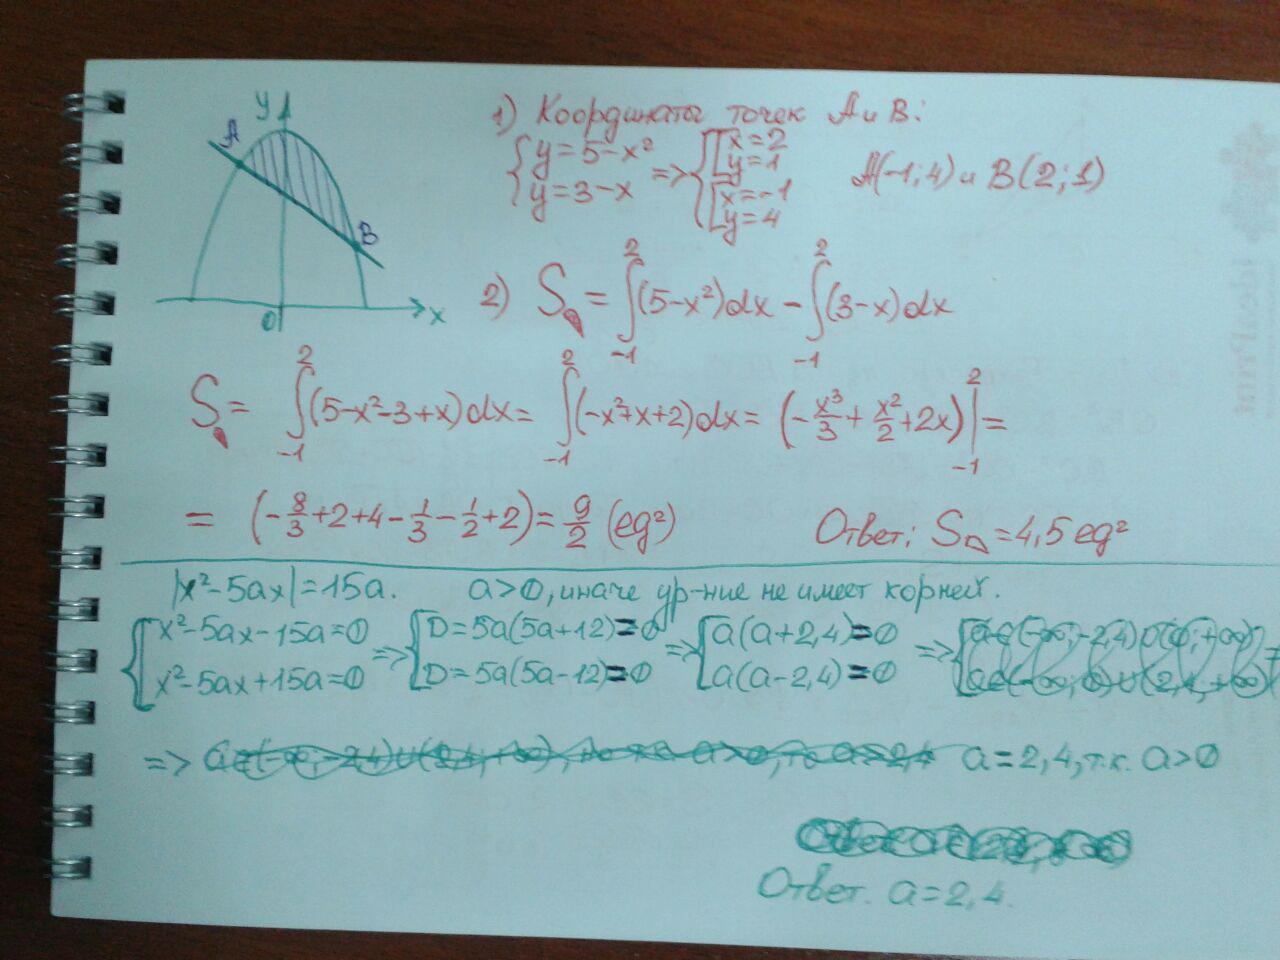 y
A
B
0
x
1) Координаты точек А и В:
{y=5-x² y=3-x => {[x=2 y=1 [x=-1 y=4 A(-1;4) и B(2;1)
2) S = ∫₋₁²(5-x²)dx - ∫₋₁²(3-x)dx
S = ∫₋₁²(5-x²-3+x)dx = ∫₋₁²(-x²+x+2)dx = (-x³/3 + x²/2 + 2x)|₋₁² =
= (-8/3+2+4-1/3-1/2+2) = 9/2 (eg²) Ответ: S = 4,5 eg²
|x²-5ax|=15a. a>0, иначе ур-ние не имеет корней.
x²-5ax-15a=0 => D=5a(5a+12)=0 => a(a+2,4)=0 =>
x²-5ax+15a=0 D=5a(5a-12)=0 a(a-2,4)=0
=> a=2,4, т.к. a>0
Ответ. a=2,4.
ideaPrint